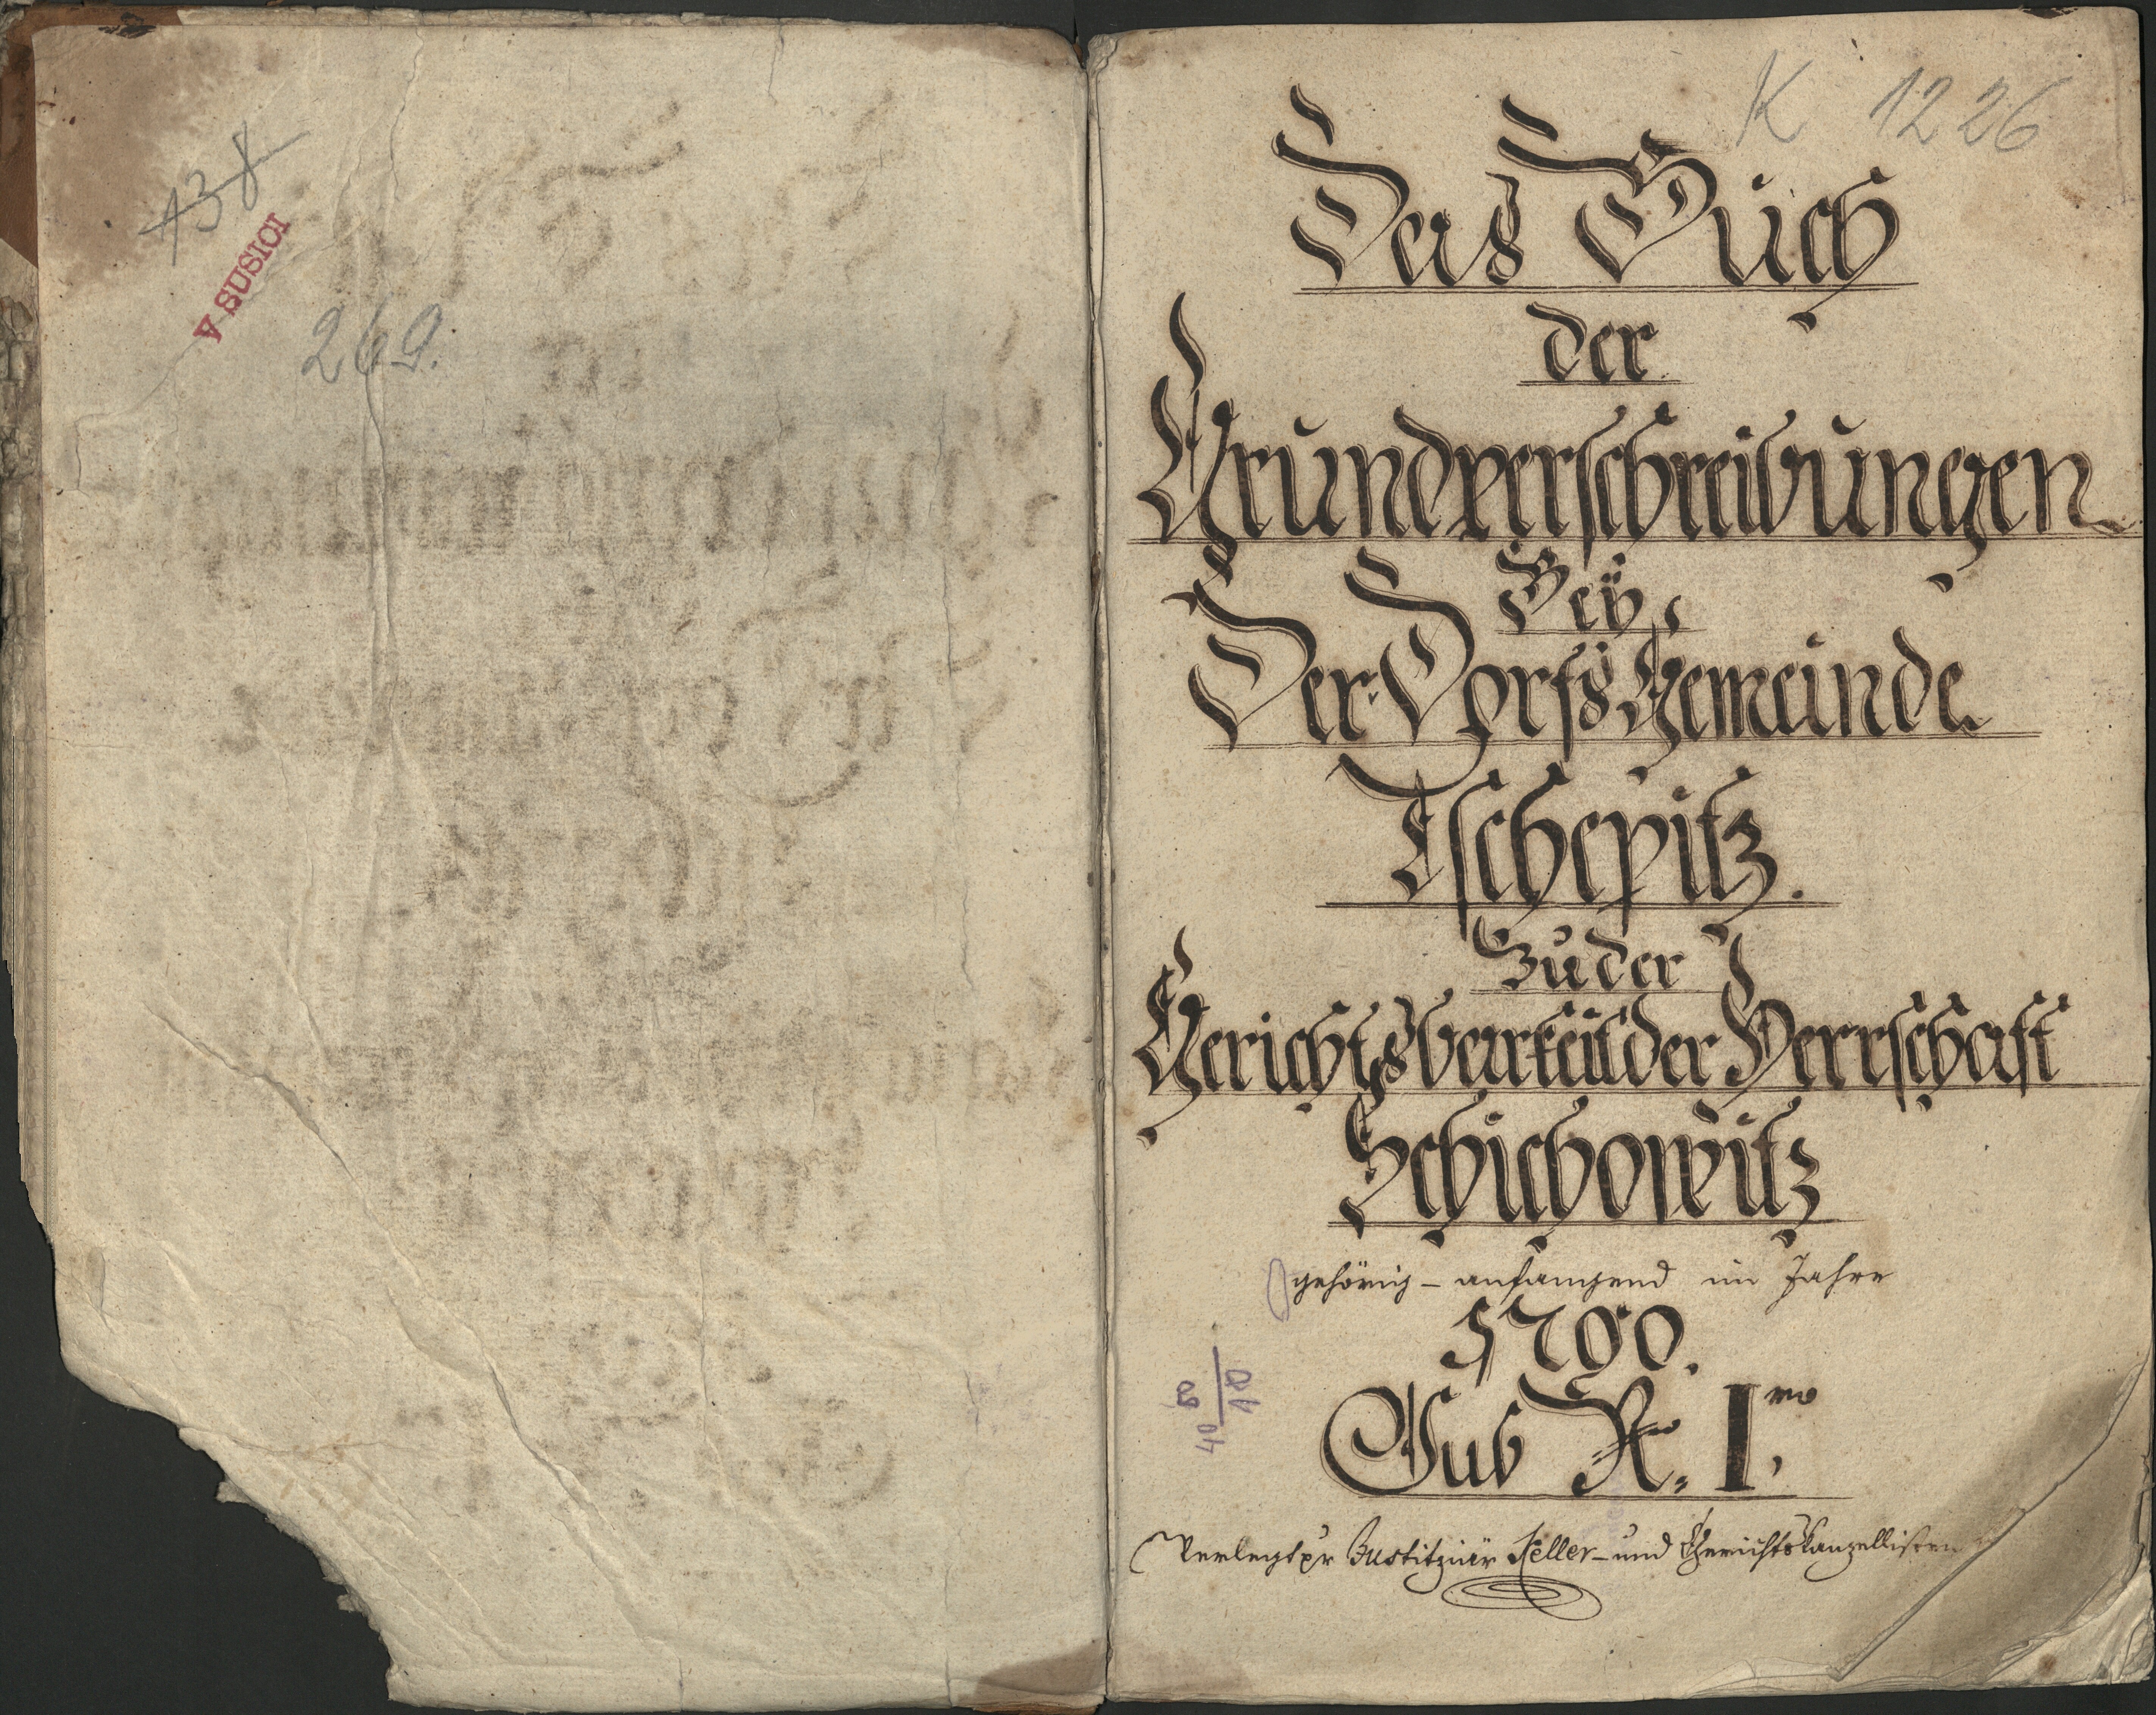 138
V SUSICI
269.
K 1226
Das Buch
der
Grundverschreibungen
Beÿ
Der Dorfs Gemeinde
Tschepitz.
Zu der
Gerichtsbarkeit der Herrschaft
Schichowitz
gehörig – anfangend im Jahre
1790.
Sub N: I mo
Verlegt pr Justitziär Keller – und Gerichtskanzellisten